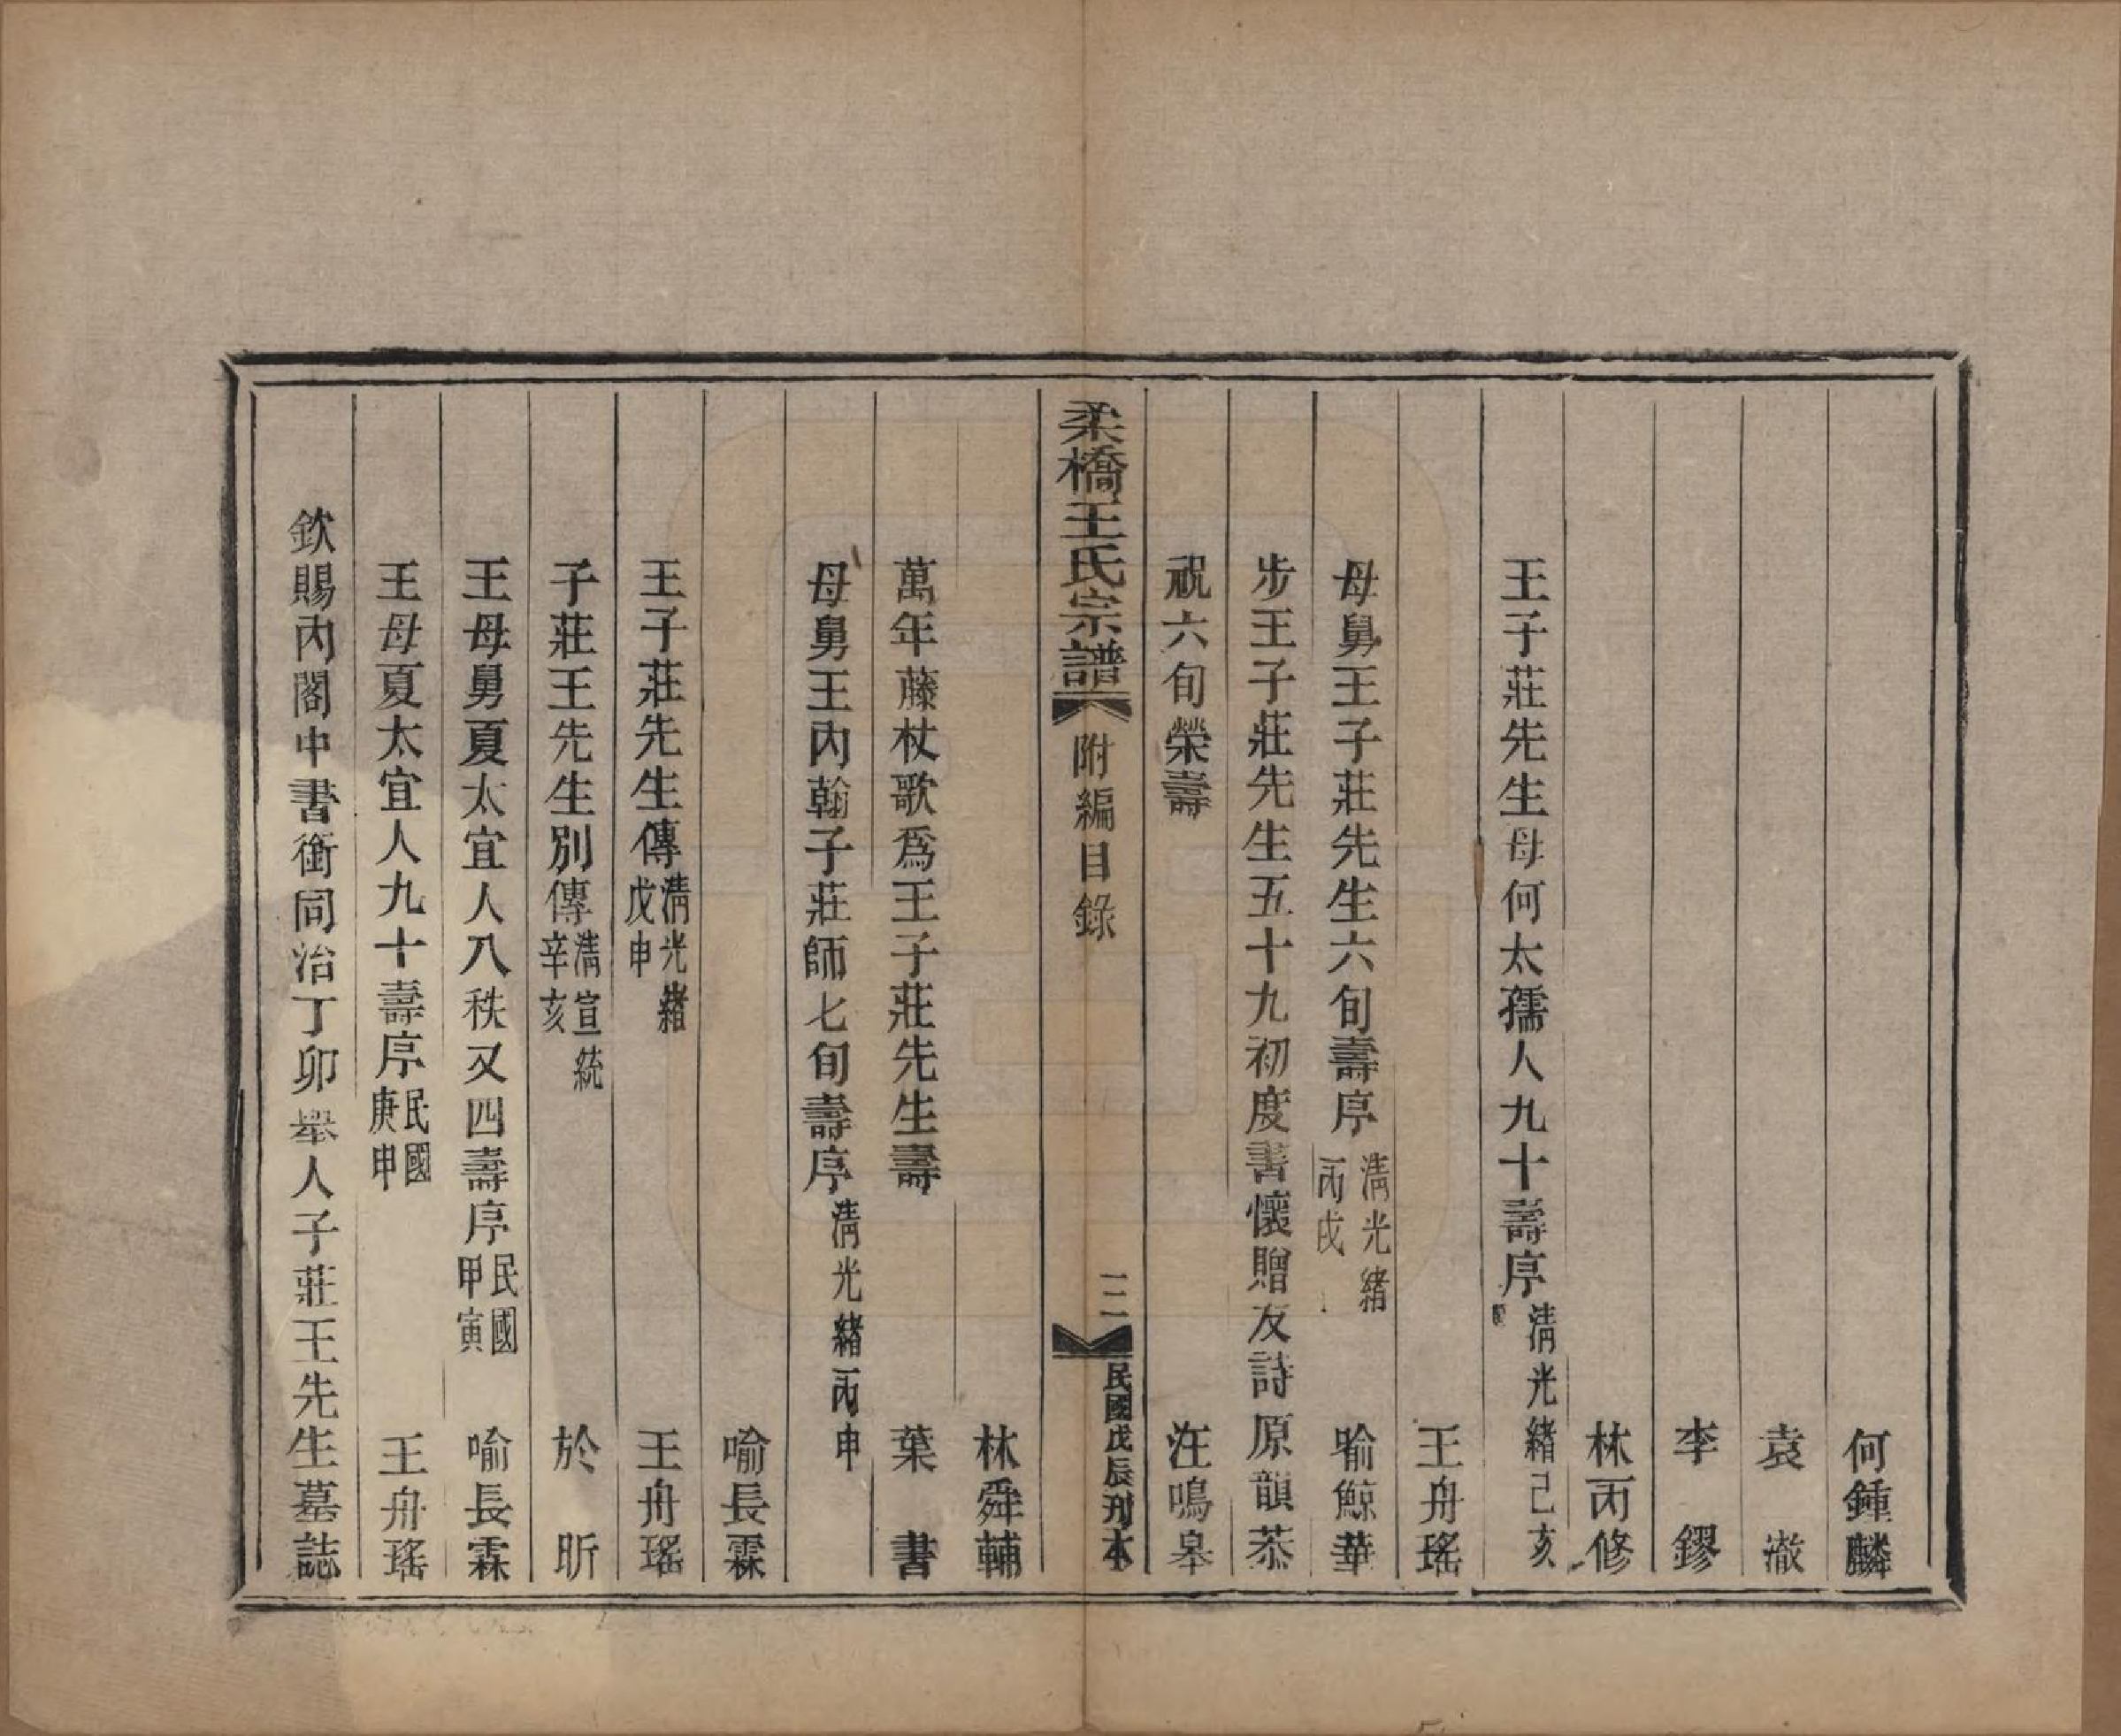 何鍾麟
袁澈
李鏐
林丙修
王子莊先生母何太孺人九十壽序清光緒己亥
王舟瑤
母舅王子莊先生六旬壽序清光緒丙戌 喻鯨華
步王子莊先生五十九初度書懷贈友詩原韻恭
祝六旬榮壽 汪鳴皋
柔橋王氏宗譜 附編目錄 三 民國戊辰刋本
林舜輔
萬年藤杖歌爲王子莊先生壽 葉書
母舅王內翰子莊師七旬壽序清光緒丙申
喻長霖
王子莊先生傳清光緒戊申 王舟瑤
子莊王先生別傳清宣統辛亥 於昕
王母舅夏太宜人八秩又四壽序民國甲寅 喻長霖
王母夏太宜人九十壽序民國庚申 王舟瑤
欽賜內閣中書銜同治丁卯舉人子莊王先生墓誌